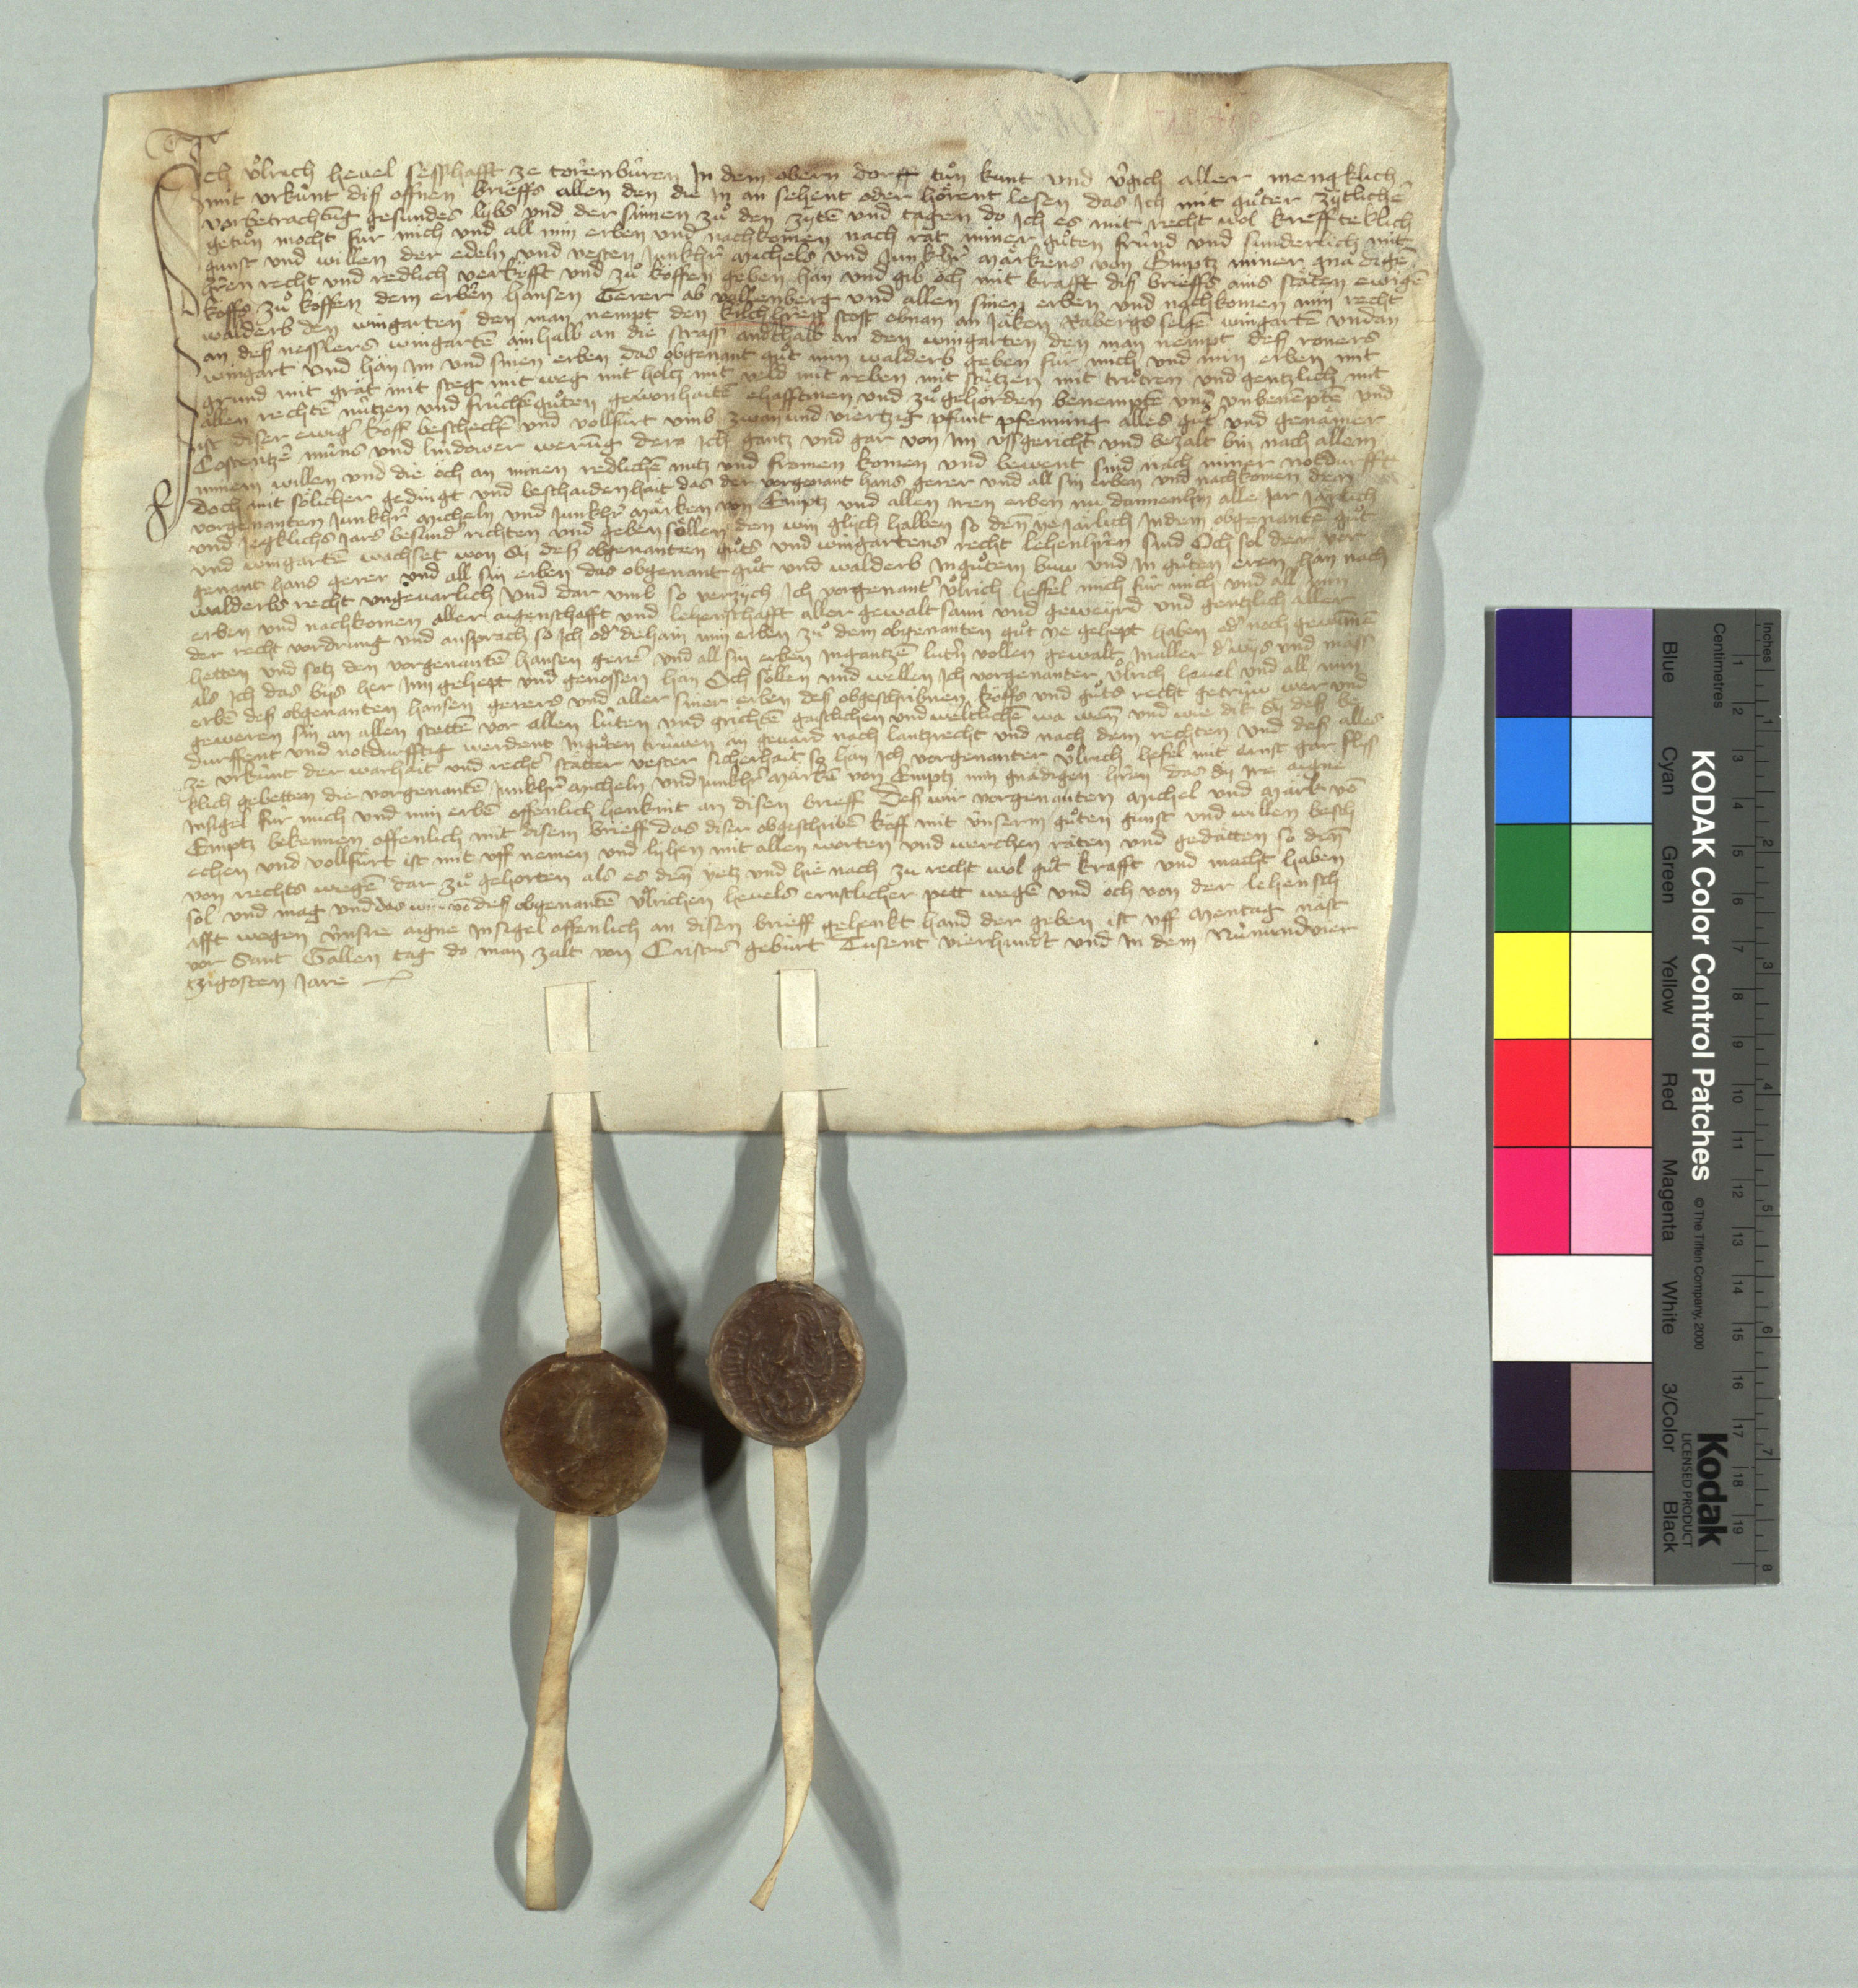 Ich ůlrich hevel sesshafft ze torenbu̇ren In dem obern dorff tůn kunt und vˀgich aller mengklich
mit vrku̇nt dis offnen brieffs allen den die In an sehent oder hörent lesen das Ich mit gůter zÿtlichˀ
vorbetrachtūg gesundes lybs vnd der sinnen zů den zyte̅ vnd tagen do Ich es mit recht wol krefftteklich
getůn mocht für mich vnd all min erben vnd nachkomen nach rāt miner gůten fru̇nd vnd sunderlich mit
gunst vnd willen der edeln vnd vesten Junkhrˀ michels vnd Junkhrˀ märkens von Emptz miner gnädige̅
hˀren recht vnd redlich verköfft vnd zů köffen geben hān vnd gib öch mit krafft dis brieffs ains stäten ewige̅
koffs zů koffen dem erbˀn hansen Gerer ab volfenberg vnd allen sinen erben vnd nachkomen min recht
walderb den wingarten den man nempt den kilchhˀren stost obnan an Jäken Rabergs selge̅ wingarte̅ vndan
an des nesslers wingarte̅ ainhalb an die strass andˀthalb an den wingarten den man nempt des roners
wingart Vnd hān Im vnd sinen erben das obgenant gůt min walderb geben für mich vnd min erben mit
grund mit grāt mit steg mit weg mit holtz mit veld mit reben mit stützen mit trůtren vnd gentzlich mit
allen rechte̅ nu̇tzen vnd fru̇chte̅ gůten gewonhaite̅ ehafftinen vnd zů gehörden benempte̅ vnd vnbene̅pte̅ vnd
ist diser ewigˀ koff beschechˀ vnd vollfürt vmb zwai vnd viertzig pfunt pfenning alles gůtˀ vnd genämer
Costentzˀ mu̇ns vnd lindower werūg dero Ich gantz vnd gar von Im vssgericht vnd bezalt bin nach allem
minem willen vnd die öch an minen redliche̅ nutz vnd fromen komen vnd bewent sind nach miner notdurfft
doch mit sölicher gedingt vnd beschaidenhait das der vorgenant hans gerer vnd all sin erben vnd nachkomen den
vorgenanten Junkhrˀ micheln vnd Junkhrˀ märken von Emptz vnd allen iren erben nu dannenhin alle Jar Järlich
vnd Jegklichs Jars besundˀ richten vnd geben söllen den win glÿch halben so den̅ ÿe Järlich In dem obgenante̅ gůt
vnd wingarte̅ wachset won sÿ des obgenanten gůts vnd wingartens recht lehenhˀren sind Och sol der vor
genant hans gerer vnd all sin erben das obgenant gůt vnd walderb In gůtem buw vnd In gůten eren han nach
walderbs recht vngevarlich Vnd dar vmb so verzÿch Ich vorgenantˀ ůlrich heffel mich fu̇r mich vnd all min
erben vnd nachkomen aller aigenschafft vnd lehenschafft aller gewaltsami vnd gewerd vnd gentzlich aller
der recht vordrung vnd ansprach so Ich odˀ dehain min erben zů dem obgenanten gůt ye gehept haben odˀ noch gewinne̅
hetten vnd setz den vorgenante̅ hansen gererˀ vnd all sin erben In gantze̅ lutrˀ vollen gewalt In aller dˀ wÿs vnd mäss
als Ich das bys her Inn gehept vnd genossen han Och söllen vnd wellen Ich vorgenanter ůlrich hevel vnd all min
erbe̅ des obgenanten hansen gerers vnd aller siner erben des obgeschribnen köffs vnd gůts recht getrüw wer vnd
geweren sin an allen stette̅ vor allen lu̇ten vnd grichte̅ gaistlichen vnd weltliche̅ wa wen̅ vnd wie dik sy des be
durffent vnd notdurfftig werdent In gůten tru̇wen ān gevärd nach lantzrecht vnd nach dem rechten Vnd des alles
ze vrku̇nt der warhait vnd rechtˀ stätter vester sicherhait so han Ich vorgenanter ůlrich hefel mit ernst gar fliss
klich gebetten die vorgenante̅ Junkhrˀ micheln vnd Junkhrˀ märke̅ von Emptz min gnädigen hˀren das sÿ Ire aigne
Insigel fu̇r mich vnd min erbe̅ offenlich henkint an disen brieff Des wir vorgenanten michel vnd märk vo̅
Emptz bekennen offenlich mit disem brieff das diser obgeschribe̅ köff mit vnserm gůten gunst vnd willen besch
echen vnd vollfu̇rt ist mit vff nemen vnd lyhen mit allen worten vnd werchen räten vnd gedätten so den̅
von rechts wege̅ dar zů gehorten als es den̅ yetz vnd hie nach zu recht wol gůt krafft vnd macht haben
sol vnd mag vnd das wir vo̅ des obgenante̅ ůlrichen hevels ernstlicher pett wege̅ vnd och von der lehensch
afft wegen vnsre aigne Insigel offenlich an disen brieff gehenkt hand der geben ist vff mentag näst
vor Sant Gallen tag do man zalt von Cristus gebürt Tusent vierhundˀt vnd In dem Nu̇nundvier
zigosten Jare
KODAK Color Control Patches
© The Tiffen Company, 2000
Kodak
LICENSED PRODUCT
Blue Cyan Green Yellow Red Magenta White 3/Color Black
Inches 1 2 3 4 5 6 7 8
Centimetres 1 2 3 4 5 6 7 8 9 10 11 12 13 14 15 16 17 18 19